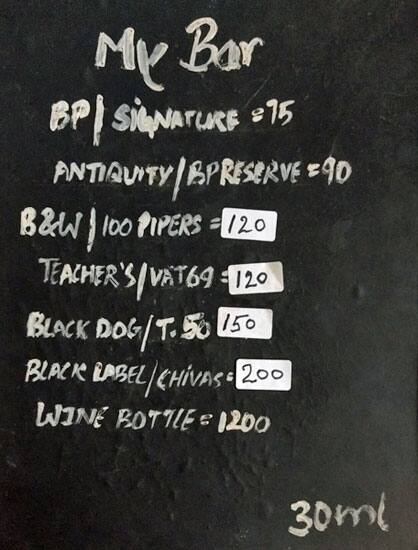 My Bar
BP/SIGNATURE = 75
ANTIQUITY/BPRESERVE = 90
B&W/100 PIPERS = 120
TEACHER'S/VAT69 = 120
BLACK DOG/T.50 150
BLACK LABEL/CHIVAS = 200
WINE BOTTLE = 1200
30ml